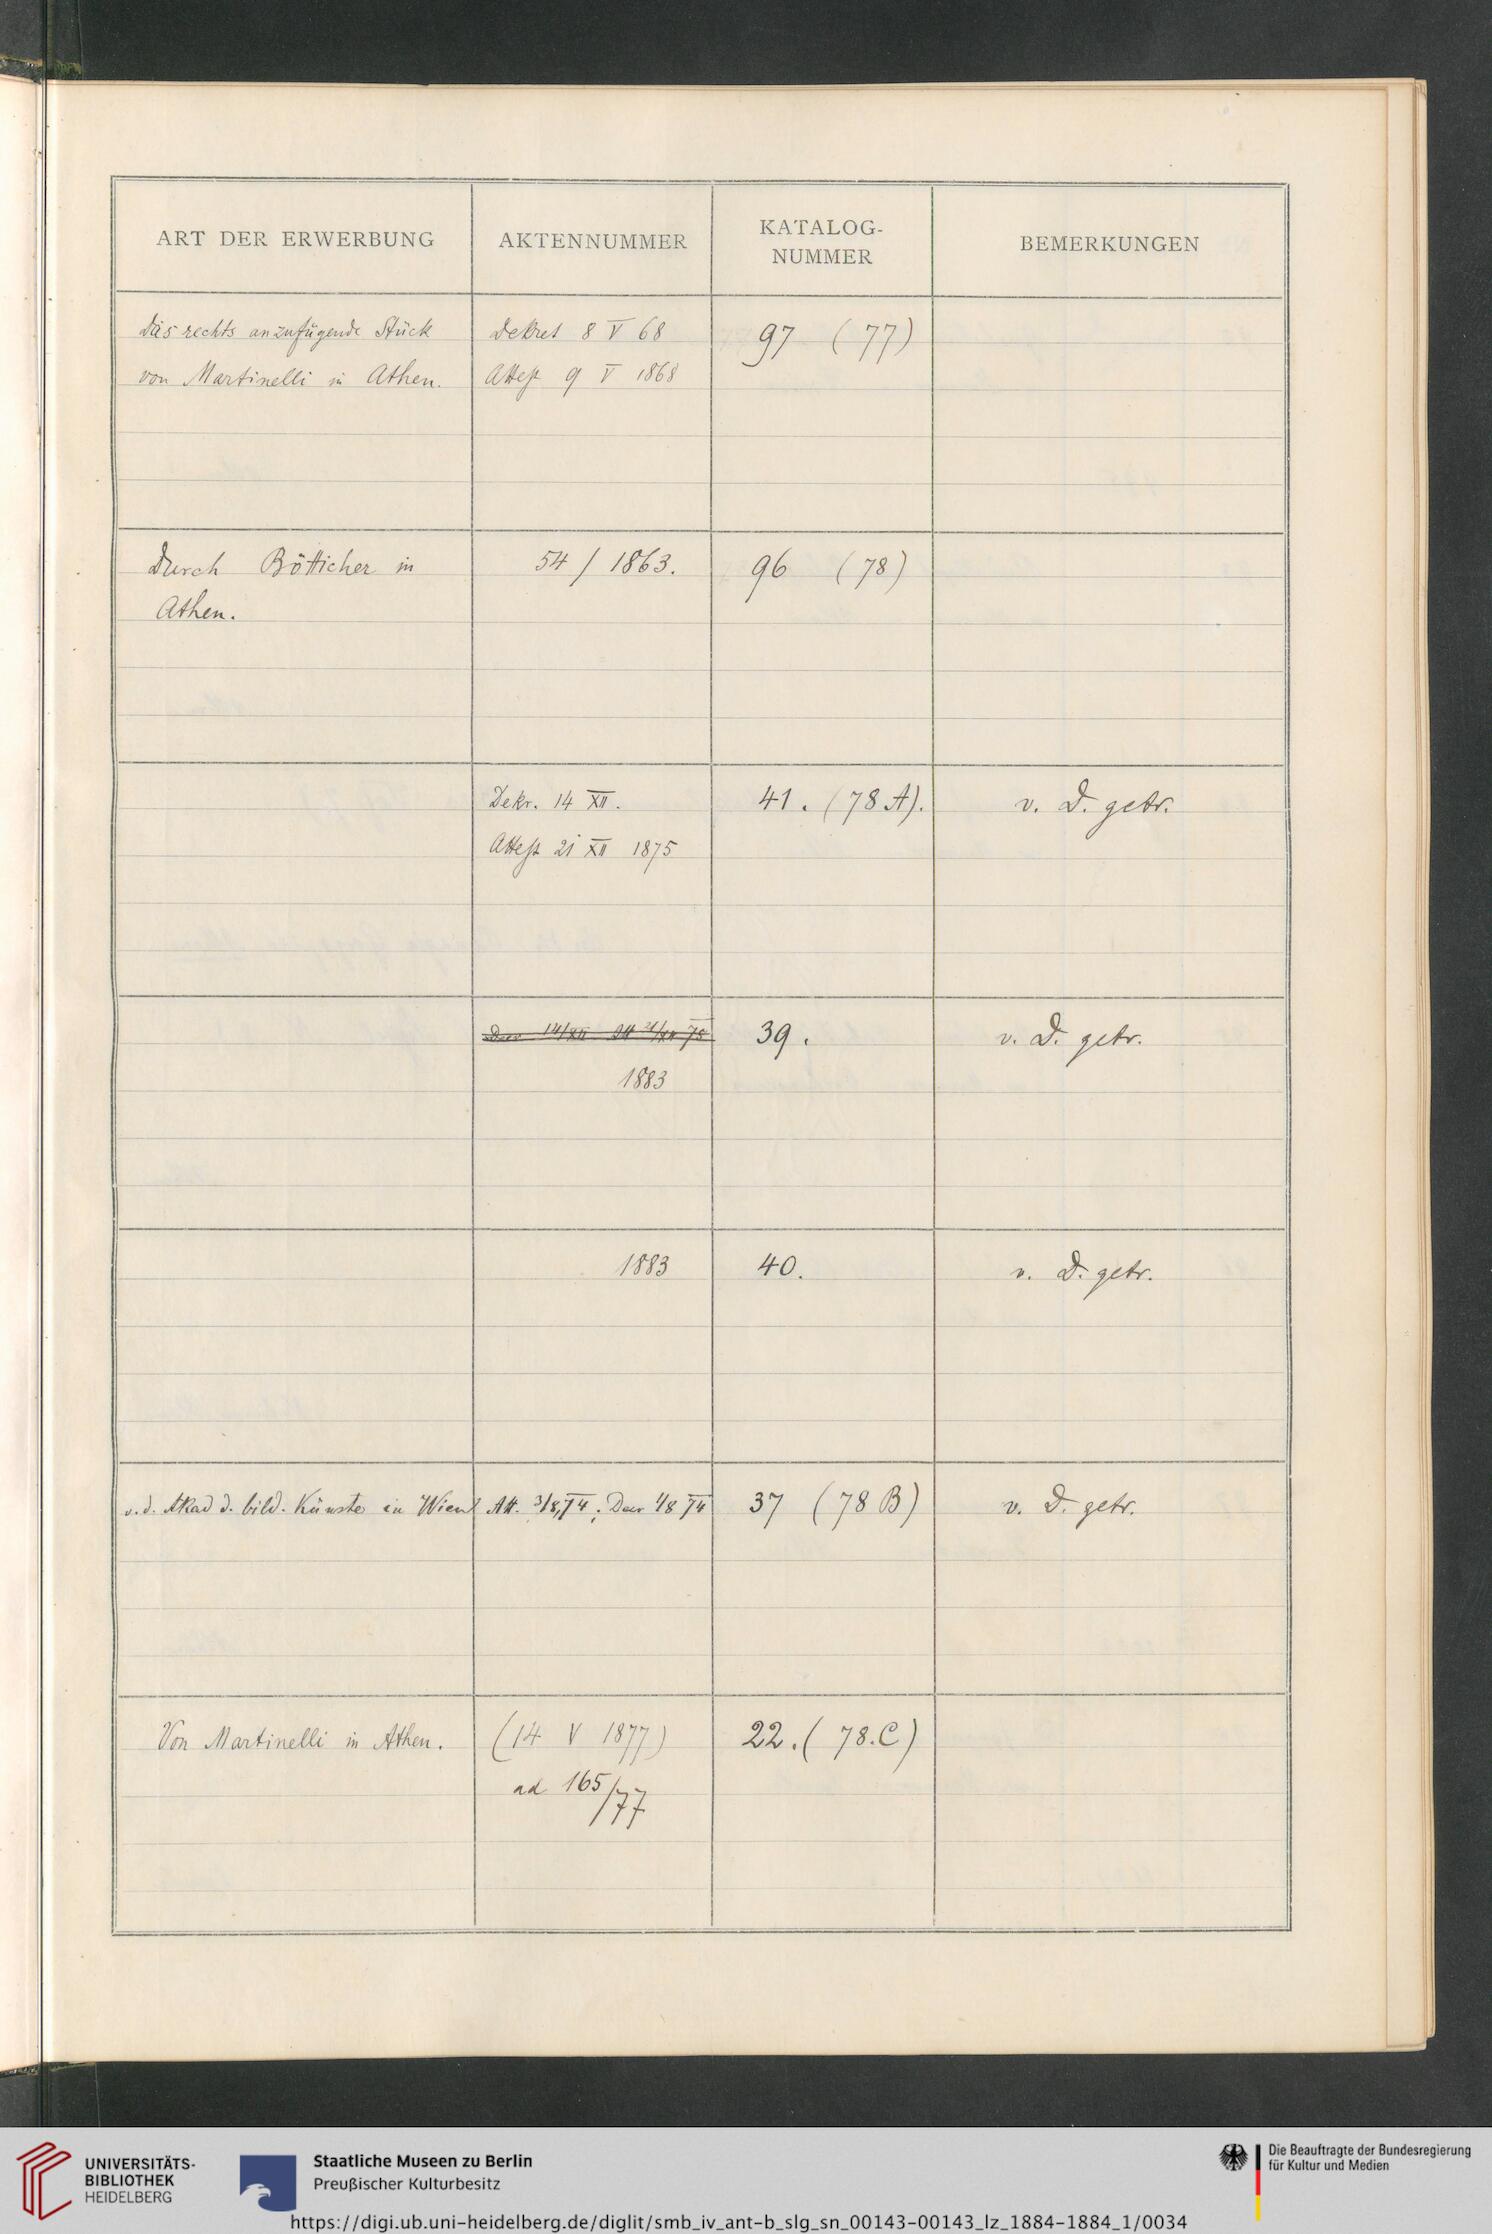 ART DER ERWERBUNG
AKTENNUMMER
KATALOG-
NUMMER
BEMERKUNGEN
Das rechts anzufügende Stück
von Martinelli in Athen.
Dekret 8 V 68
Attest 9 V 1868
97 (77)
Durch Bötticher in
Athen.
54 / 1863.
96 (78)
Dekr. 14 XII.
Attest 21 XII 1875
41. (78 A).
v. D. getr.
Decr 14/XII Att 21/XII 75
1883
39.
v. D. getr.
1883
40.
v. D. getr.
v. d. Akad d. bild. Künste in Wien
Att. 3/8, 74; Decr 1/8 74
37 (78 B)
v. D. getr.
Von Martinelli in Athen.
(14 V 1877)
ad 165/77
22. (78.C)
UNIVERSITÄTS-
BIBLIOTHEK
HEIDELBERG
Staatliche Museen zu Berlin
Preußischer Kulturbesitz
Die Beauftragte der Bundesregierung
für Kultur und Medien
https://digi.ub.uni-heidelberg.de/diglit/smb_iv_ant-b_slg_sn_00143-00143_lz_1884-1884_1/0034